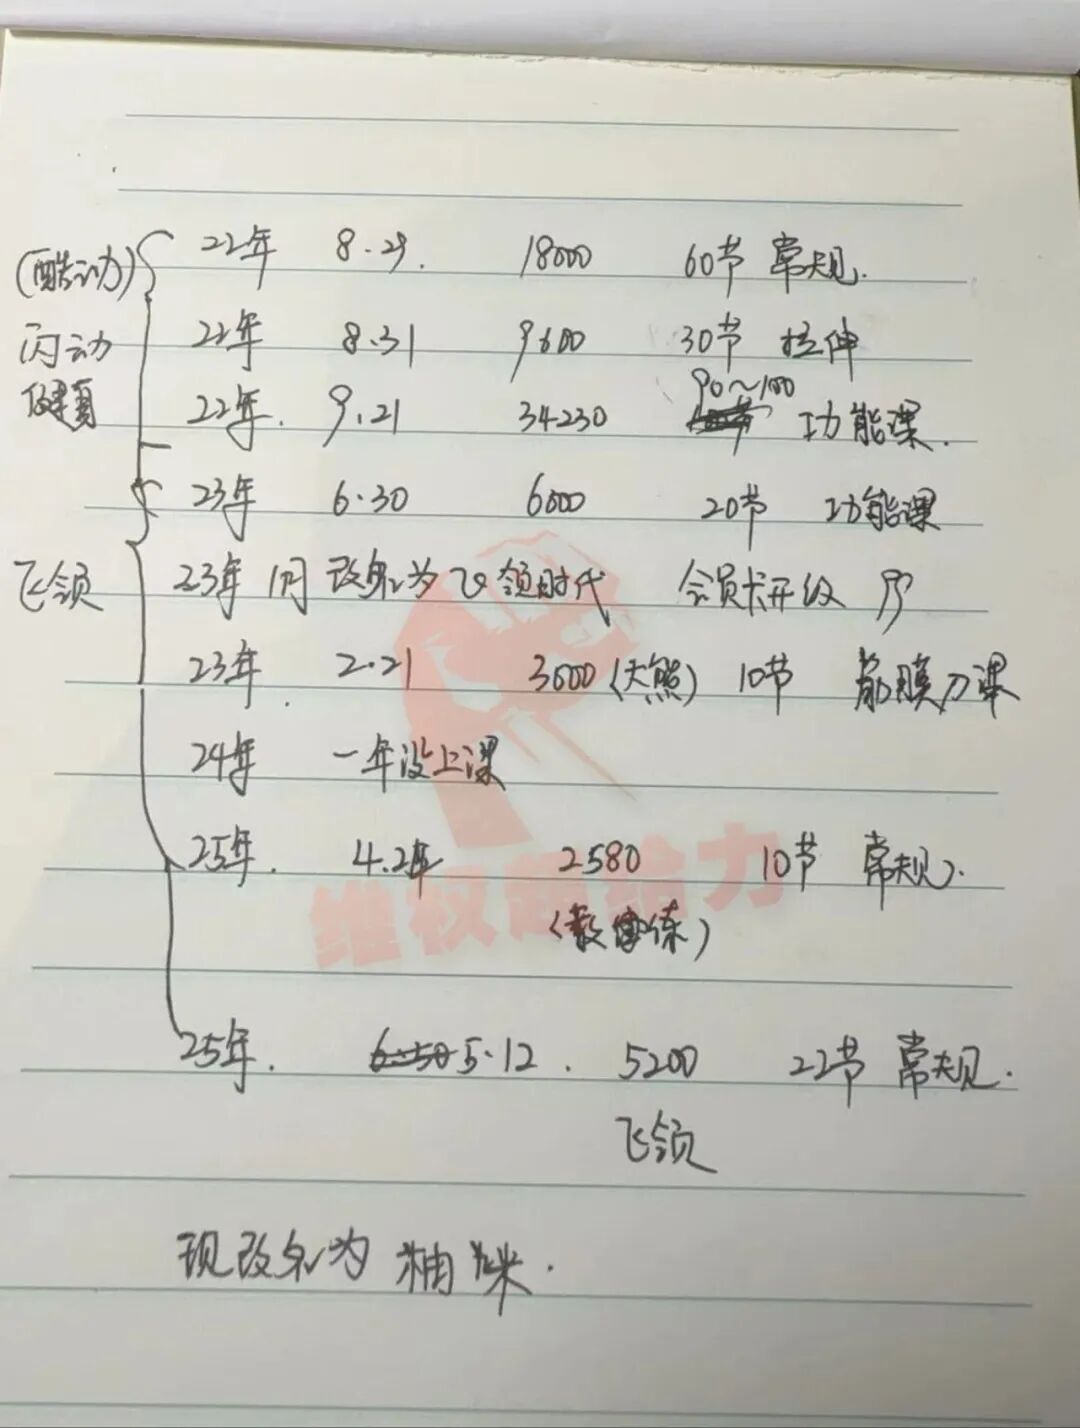 (酷动力) 22年 8.29. 18000 60节 常规.
闪动 22年 8.31 9600 30节 拉伸
健身 22年. 9.21 34230 90~100 功能课.
23年 6.30 6000 20节 功能课
飞领 23年 1月 改名为飞领时代 会员卡升级
23年. 2.21 3600(大熊) 10节 筋膜刀课
24年 一年没上课
25年. 4.2 2580 10节 常规.
25年. 5.12. 5200 22节 常规.
飞领
现改名为 柚米.
维权超给力